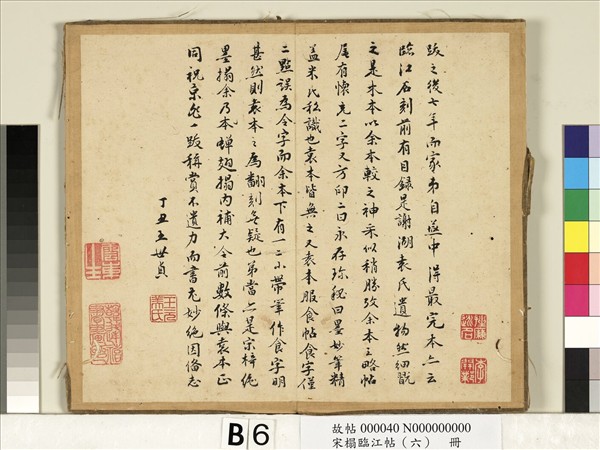 跋之後七年而家弟自燕中得最完本亦云
臨江石刻前有目錄是謝湖袁氏遺物然細翫
之是木本以余本較之神采似稍勝攷余本之略帖
尾有懷充二字又方印二曰永存珍秘曰墨妙筆精
蓋米氏私識也袁本皆無之又袁本服食帖食字僅
二點誤為令字而余本下有一二小帶筆作食字明
甚然則袁本之為翻刻無疑也弟當亦是宋梓純
墨搨余乃本蟬翅搨內補大令前數條與袁本正
同祝京兆一跋稱賞不遺力而書尤妙絕因俻志
丁丑王世貞
B6
故帖 000040 N000000000
宋搨臨江帖（六） 冊